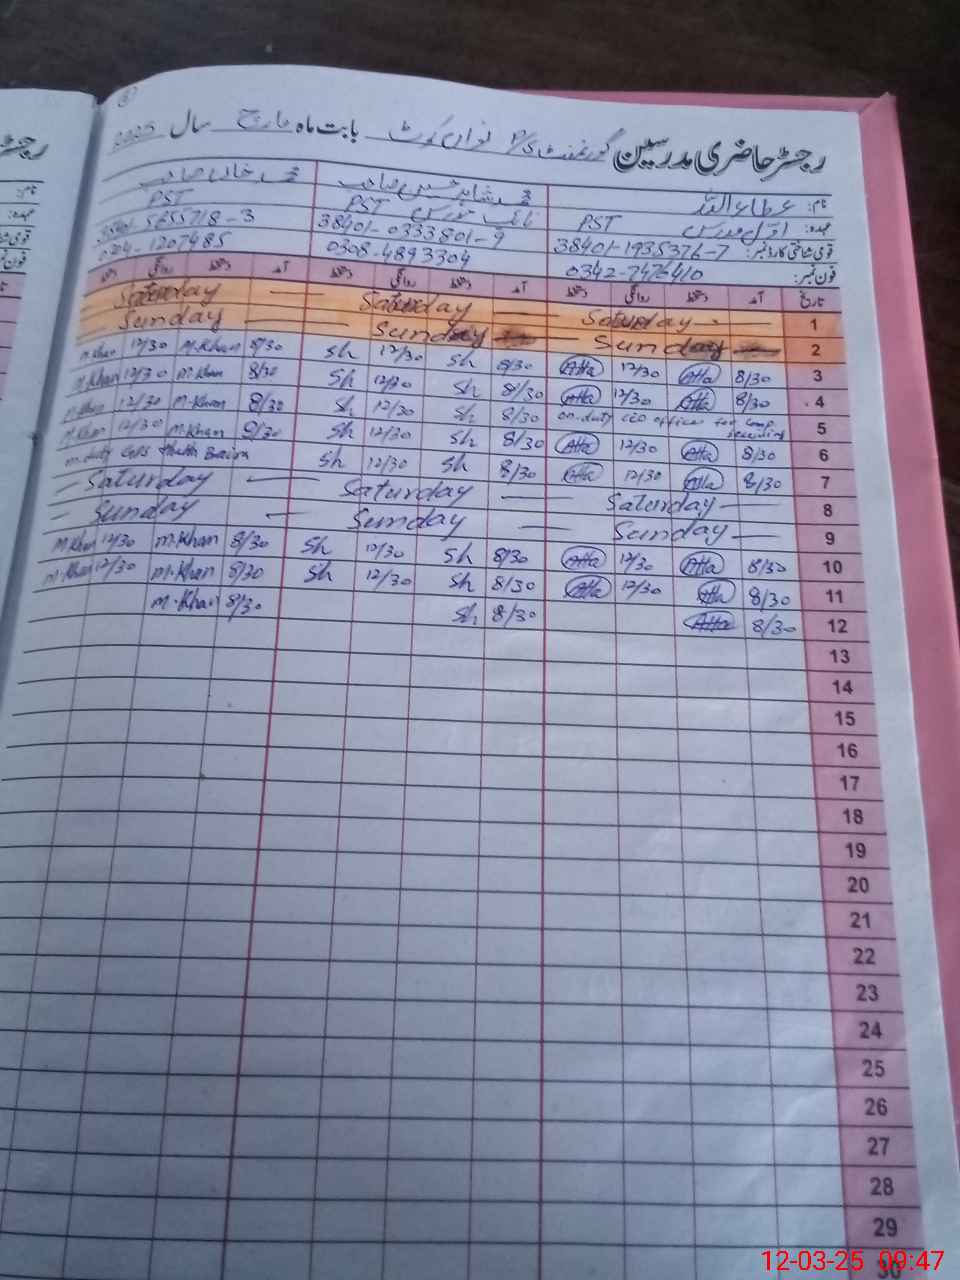 رجسٹر حاضری مدرسین گورنمنٹ P/S نواں کوٹ بابت ماہ مارچ سال 2025
نام: عطاء اللہ محمد شاہد حسین صاحب محمد خان صاحب
عہدہ: اول مدرس PST نائب مدرس PST PST
قومی شناختی کارڈ نمبر: 38401-1935376-7 38401-0333801-9 38401-5655718-3
فون نمبر: 0342-7476410 0308-4893304 1207485
تاریخ آمد دستخط روانگی دستخط آمد دستخط روانگی دستخط آمد دستخط روانگی دستخط
Saturday Saturday Saturday 1
Sunday Sunday Sunday 2
M.Khan 12/30 M.Khan 8/30 Sh 12/30 Sh 8/30 Atta 12/30 Atta 8/30 3
M.Khan 12/30 M.Khan 8/30 Sh 12/30 Sh 8/30 Atta 12/30 Atta 8/30 4
M.Khan 12/30 M.Khan 8/30 Sh 12/30 Sh 8/30 on-duty CEO office for 5
M.Khan 12/30 M.Khan 8/30 Sh 12/30 Sh 8/30 Atta 12/30 Atta 8/30 6
duty GHS Sh 12/30 Sh 8/30 Atta 12/30 Atta 8/30 7
Saturday Saturday Saturday 8
Sunday Sunday Sunday 9
M.Khan 12/30 M.Khan 8/30 Sh 12/30 Sh 8/30 Atta 12/30 Atta 8/30 10
M.Khan 12/30 M.Khan 8/30 Sh 12/30 Sh 8/30 Atta 12/30 Atta 8/30 11
M.Khan 8/30 Sh 8/30 Atta 8/30 12
13
14
15
16
17
18
19
20
21
22
23
24
25
26
27
28
29
30
12-03-25 09:47